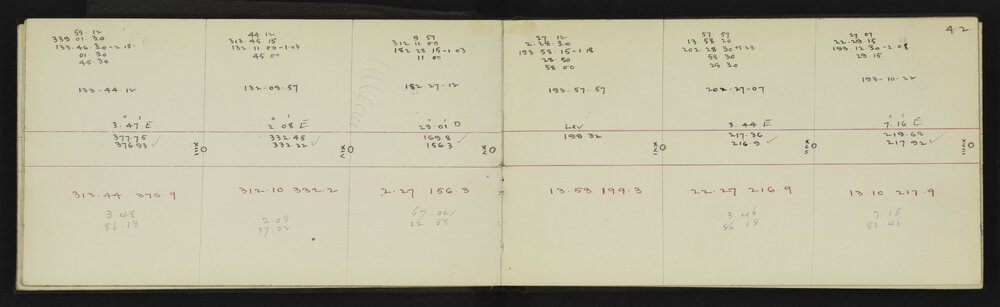 42
59 12
339.01.30
133.46.30-2.18
01.30
45.30
133-44-12
3.47 E
377.75
376.93 ✓
313.44 376.9
3.48
86.13
44 12
313.45 15
132 11 00-1.03
45 00
132-09-57
2 08 E
332.45
332 22 ✓
312.10 332.2
2.08
57.52
9 57
312 11 00
182 28 15-1.03
11 00
182-27-12
23.01 D
169.8
156.3 ✓
2.27 156.3
67.01
22 55
27 12
2.28.30
193 58.15-1.18
28.50
58 00
193-57-57
Lev
199.32
13.58 199.3
57 57
13 58 20
202 28 30
58.30
28 30
202-27-07
3.44 E
217.36
216.9 ✓
22.27 216.9
3 46
86.18
27 07
22 29 15
193 12.30-2 08
29 15
193-10-22
7.16 E
219.68
217.92 ✓
13.10 217.9
7.18
82 46